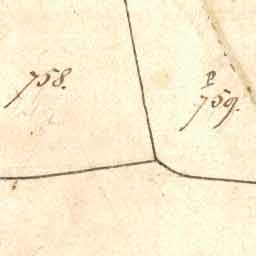 758.
P
759.